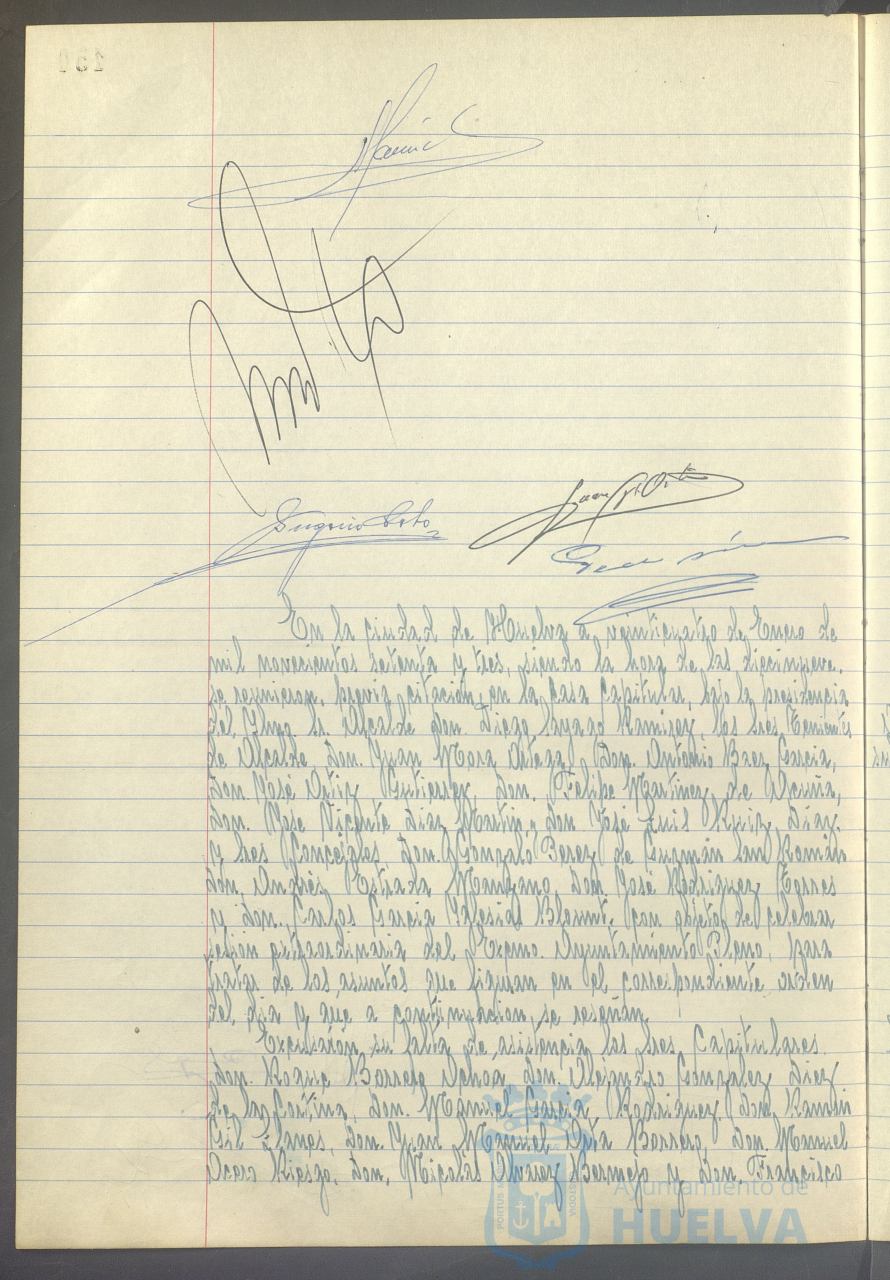 Eugenio Soto
En la ciudad de Huelva a veinticuatro de Enero de
mil novecientos setenta y tres, siendo la hora de las diecinueve.
se reunieron, previa citación, en la Casa Capitular, bajo la presidencia
del Ilmo. Sr. Alcalde don. Diego Sayago Ramirez, los Sres Tenientes
de Alcalde, Don. Juan Mora Ortega, Don. Antonio Baez Garcia,
Don. José Ortiz Gutierrez, Don. Felipe Martinez de Acuña,
Don. Jose Vicente Diaz Martin y Don José Luis Ruiz Diaz.
y Sres Concejales, Don. Gonzalo Perez de Guzmán San Román
Don, Andrés Estrada Manzano, Don. José Rodriguez Torres
y Don. Carlos Garcia Yglesias Blount, con objeto de celebrar
sesion extraordinaria del Excmo. Ayuntamiento Pleno, para
tratar de los asuntos que figuran en el correspondiente orden
del dia y que a continuacion, se reseñan.
Excusarón su falta de asistencia los Sres. Capitulares
Don. Roque Borrero Ochoa Don. Alejandro Gonzalez Diez
de la Cortina, Don. Manuel Garcia Rodriguez, Don Ramón
Gil Llanos, Don. Juan Manuel Borrero, Don. Manuel
Riesgo, Don. Nicolás Bermejo y Don. Francisco
PORTUS CUSTODIA
Ayuntamiento de
HUELVA